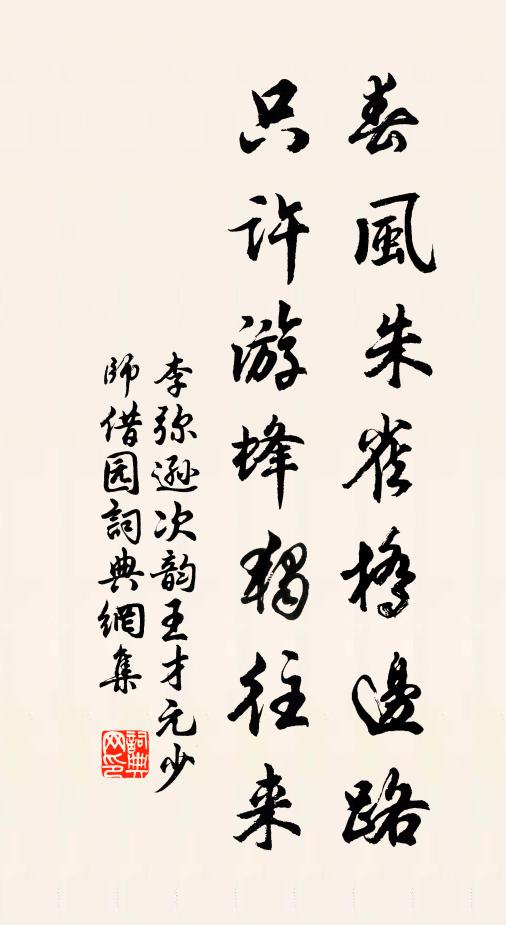 春風朱雀橋邊路
只许游蜂獨往来
李弥遜次韵王才元少
師借园詞典網集
詞典网印